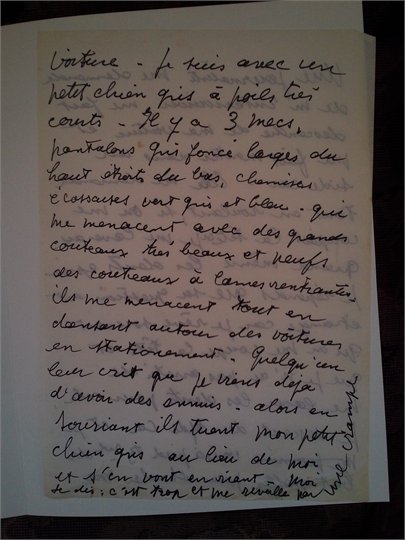 voiture - je suis avec un
petit chien gris à poils très
courts - Il y a 3 mecs,
pantalons gris foncé larges du
haut étroits du bas, chemises
écossaises vert gris et bleu - qui
me menacent avec des grands
couteaux très beaux et neufs
des couteaux à lames rentrantes.
ils me menacent tout en
dansant autour des voitures
en stationnement - Quelqu'un
leur crit que je viens déjà
d'avoir des ennuis - alors en
souriant ils tuent mon petit
chien gris au lieu de moi
et s'en vont en riant - Moi
je dis : c'est trop et me réveille par
une crampe